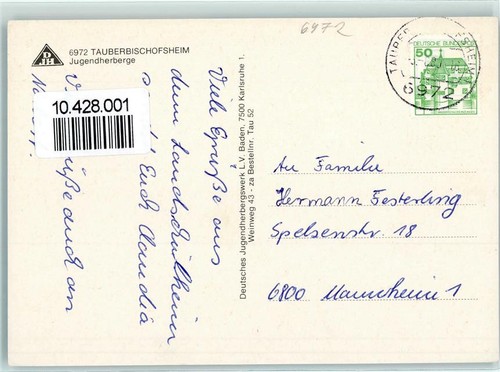 6972
6972 TAUBERBISCHOFSHEIM
Jugendherberge
DJH
10.428.001
Viele Grüße aus
dem Landschulheim
Euch Claudia
Grüße auch an
Deutsches Jugendherbergswerk L.V. Baden, 7500 Karlsruhe 1,
Weinweg 43 - za Bestellnr. Tau 52
50
DEUTSCHE BUNDESPOST
6972
An Familie
Hermann Festerling
Spelsenstr. 18
6800 Mannheim 1